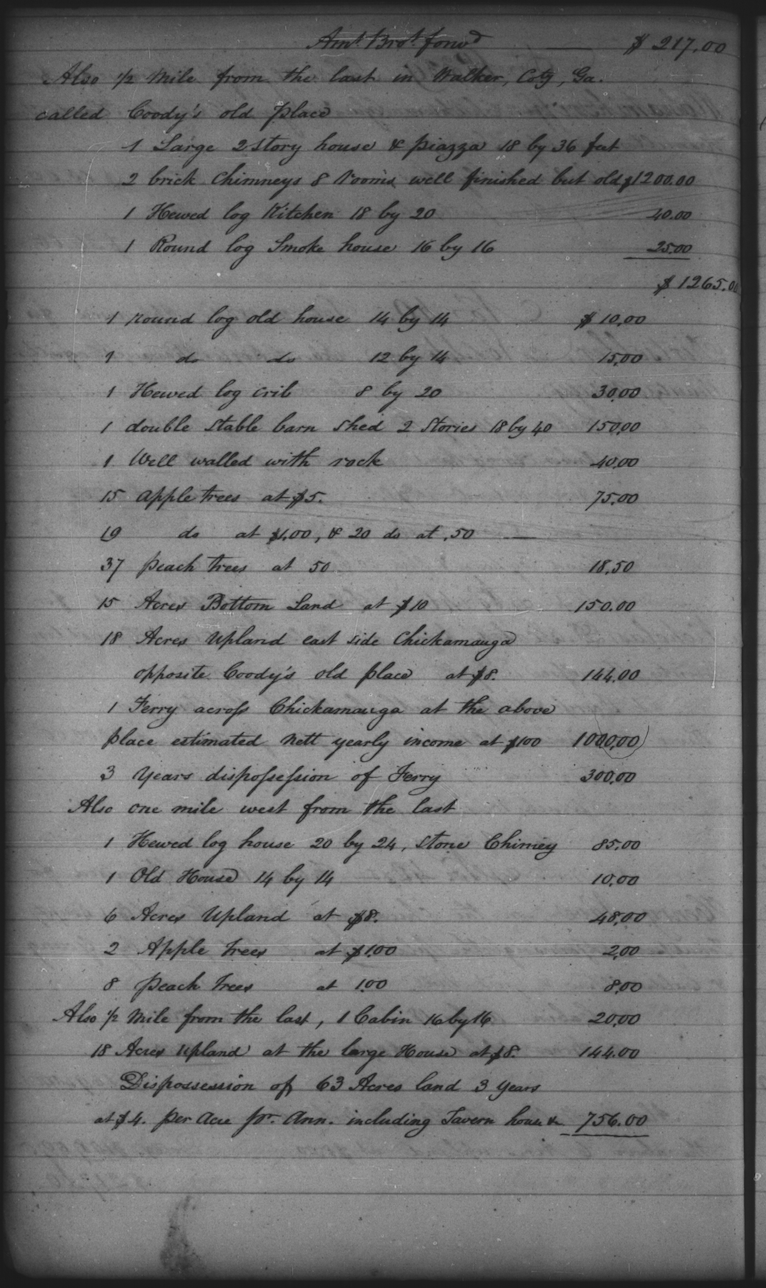 Amt Brot forwd $ 217.00
Also ½ Mile from the last in Walker, Co, Ga.
called Coody's old place
1 Large 2 story house & piazza 18 by 36 feet
2 brick Chimneys 8 Rooms well finished but old $1200.00
1 Hewed log Kitchen 18 by 20 40.00
1 Round log Smoke house 16 by 16 25.00
$ 1265.00
1 round log old house 14 by 14 $ 10.00
1 do do 12 by 14 15.00
1 Hewed log crib 8 by 20 30.00
1 double stable barn shed 2 Stories 18 by 40 150.00
1 Well walled with rock 40.00
15 Apple trees at $5. 75.00
19 do at $1.00, & 20 do at .50
37 peach trees at 50 18.50
15 Acres Bottom Land at $10 150.00
18 Acres Upland east side Chickamauga
opposite Coody's old place at $8. 144.00
1 Ferry across Chickamauga at the above
place estimated nett yearly income at $100 1000.00
3 Years dispossession of Ferry 300.00
Also one mile west from the last
1 Hewed log house 20 by 24, stone Chimney 85.00
1 Old House 14 by 14 10.00
6 Acres Upland at $8. 48.00
2 Apple trees at $1.00 2.00
8 peach trees at 1.00 8.00
Also ½ Mile from the last, 1 Cabin 16 by 16 20.00
18 Acres Upland at the large House at $8. 144.00
Dispossession of 63 Acres land 3 Years
at $4. per Acre pr. Ann. including Tavern house & 756.00